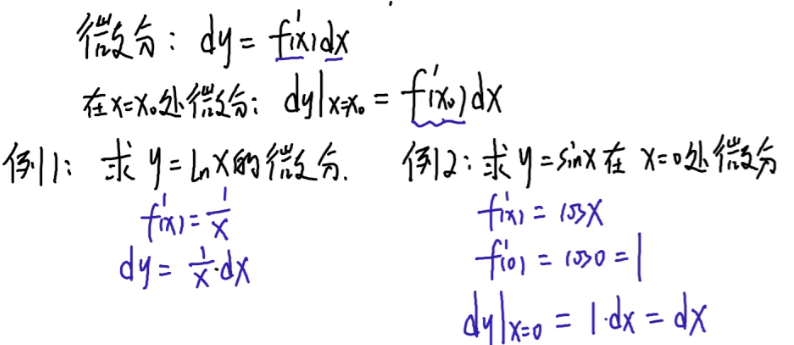 微分: dy = f'(x)dx
在x=x₀处微分: dy|x=x₀ = f'(x₀)dx
例1: 求 y=lnx的微分.
f'(x)=1/x
dy= 1/x·dx
例2: 求 y=sinx在 x=0处微分
f'(x) = cosx
f'(0) = cos0 = 1
dy|x=0 = 1·dx = dx